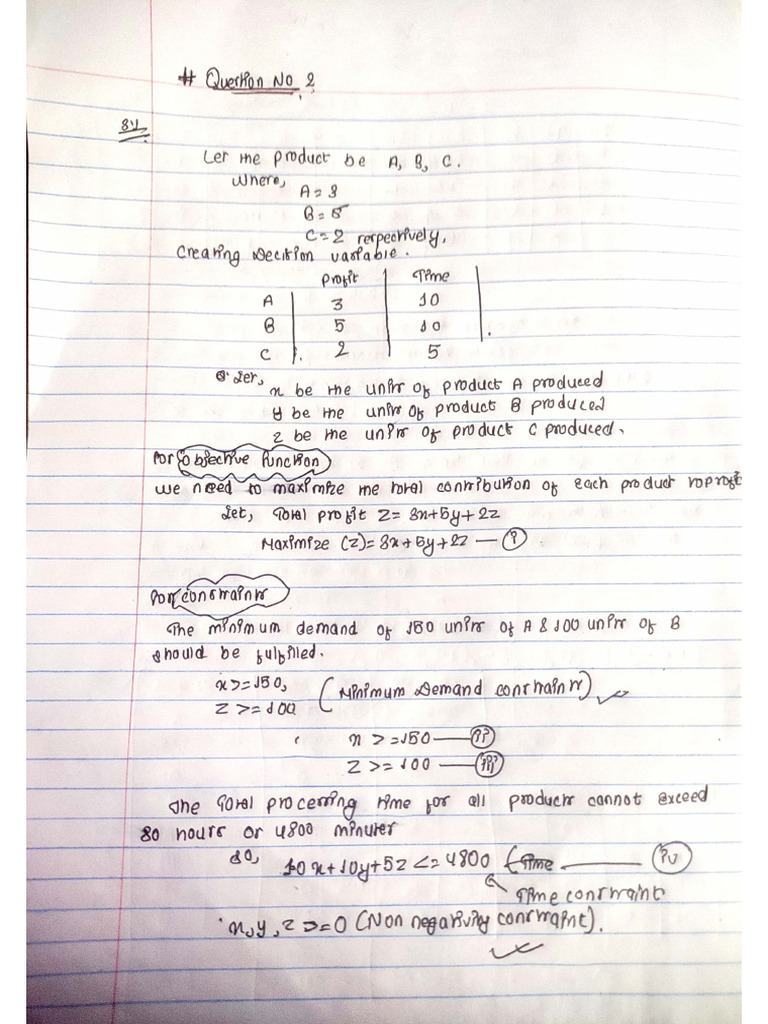 # Question No 2
Let the product be A, B, C.
Where,
A = 3
B = 5
C = 2 respectively,
Creating Decision variable.
Profit Time
A 3 10
B 5 10
C 2 5
Let,
x be the units of product A produced
y be the units of product B produced
z be the units of product C produced.
For objective function
we need to maximize the total contribution of each product to profit
Let, Total profit Z = 3x+5y+2z
Maximize (Z) = 3x+5y+2z — (i)
For constraints
The minimum demand of 150 units of A & 100 units of B
should be fulfilled.
x >= 150, (Minimum Demand constraints)
z >= 100
x >= 150 — (ii)
z >= 100 — (iii)
The total processing time for all products cannot exceed
80 hours or 4800 minutes
So, 10x+10y+5z <= 4800 (Time — (iv)
Time constraint
x, y, z >= 0 (Non negativity constraint).